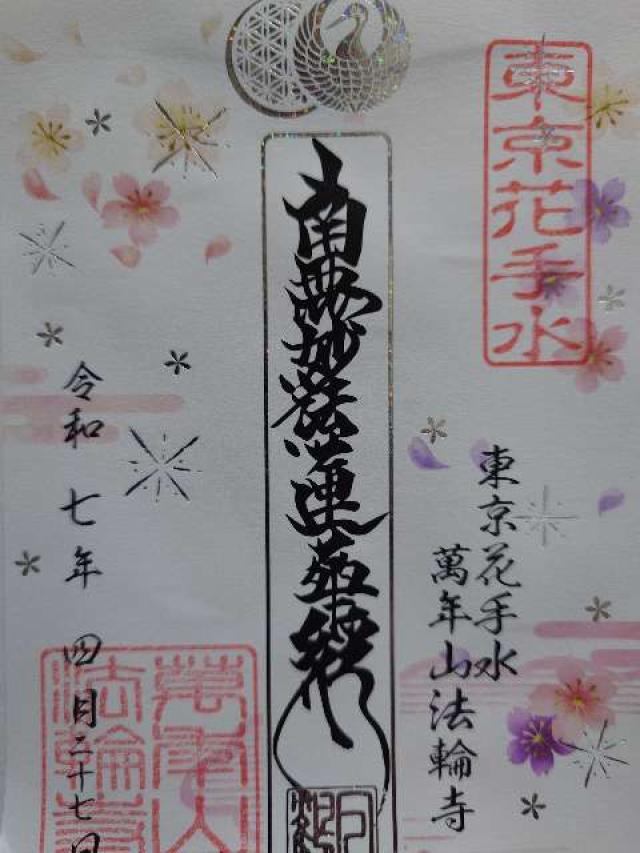 東京花手水
東京花手水
萬年山法輪寺
南無妙法蓮華経
令和七年四月二十七日
萬年山
法輪寺